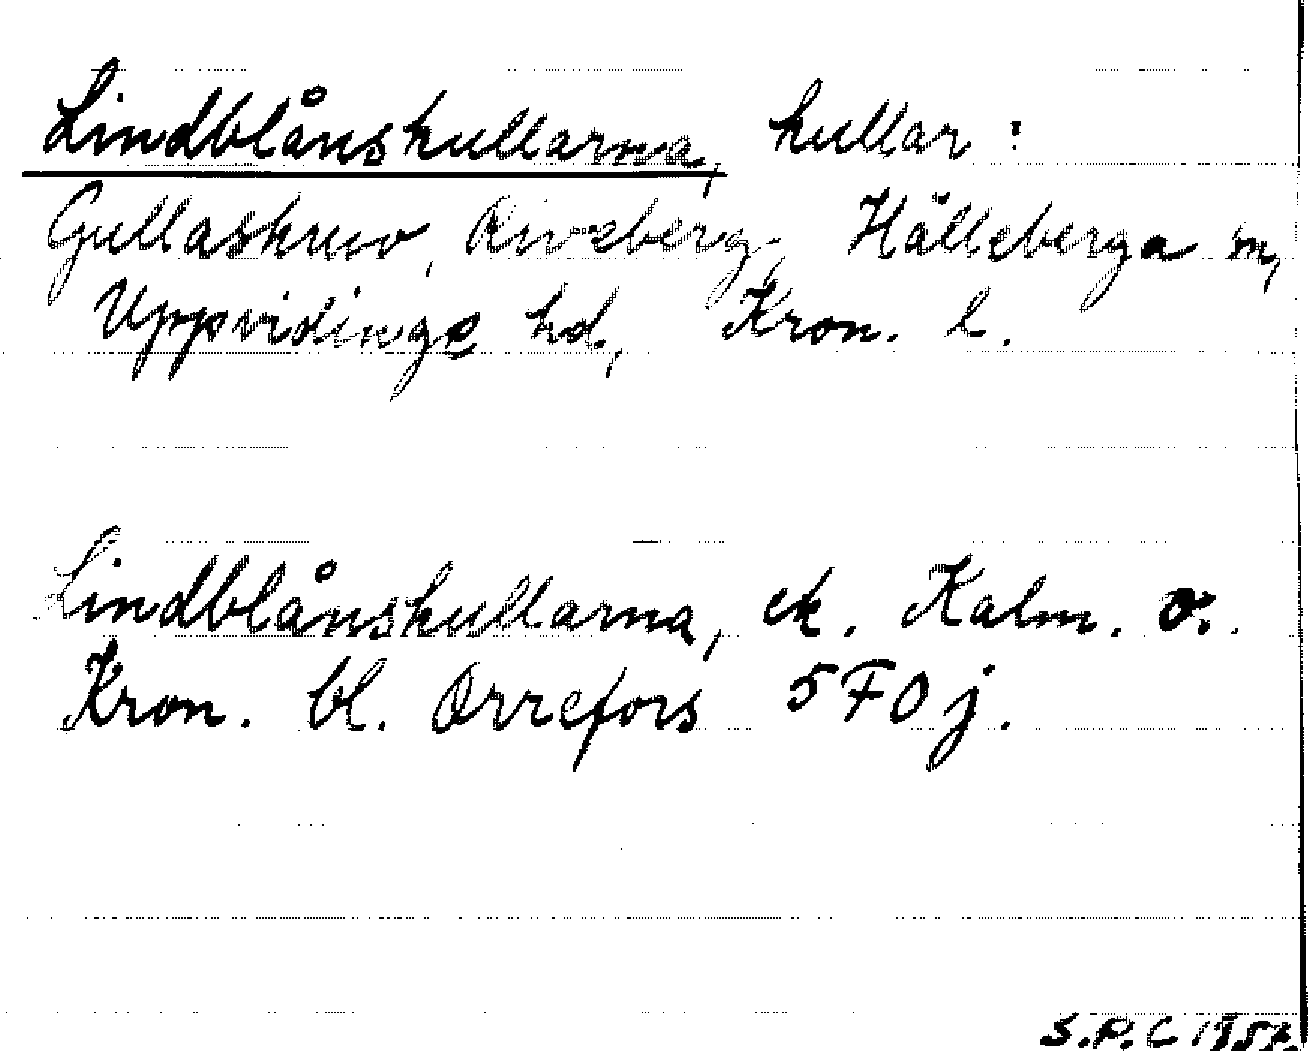 Lindblånskullarna, kullar:
Gullaskruv, Hälleberga sn,
Uppvidinge hd, Kron. l.
Lindblånskullarna, ek. Kalm. o.
Kron. bl. Orrefors 5 F 0 j.
S.P.C